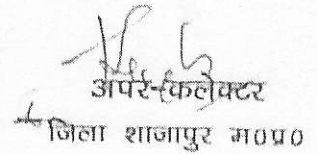 अपर-कलेक्टर
जिला शाजापुर म०प्र०